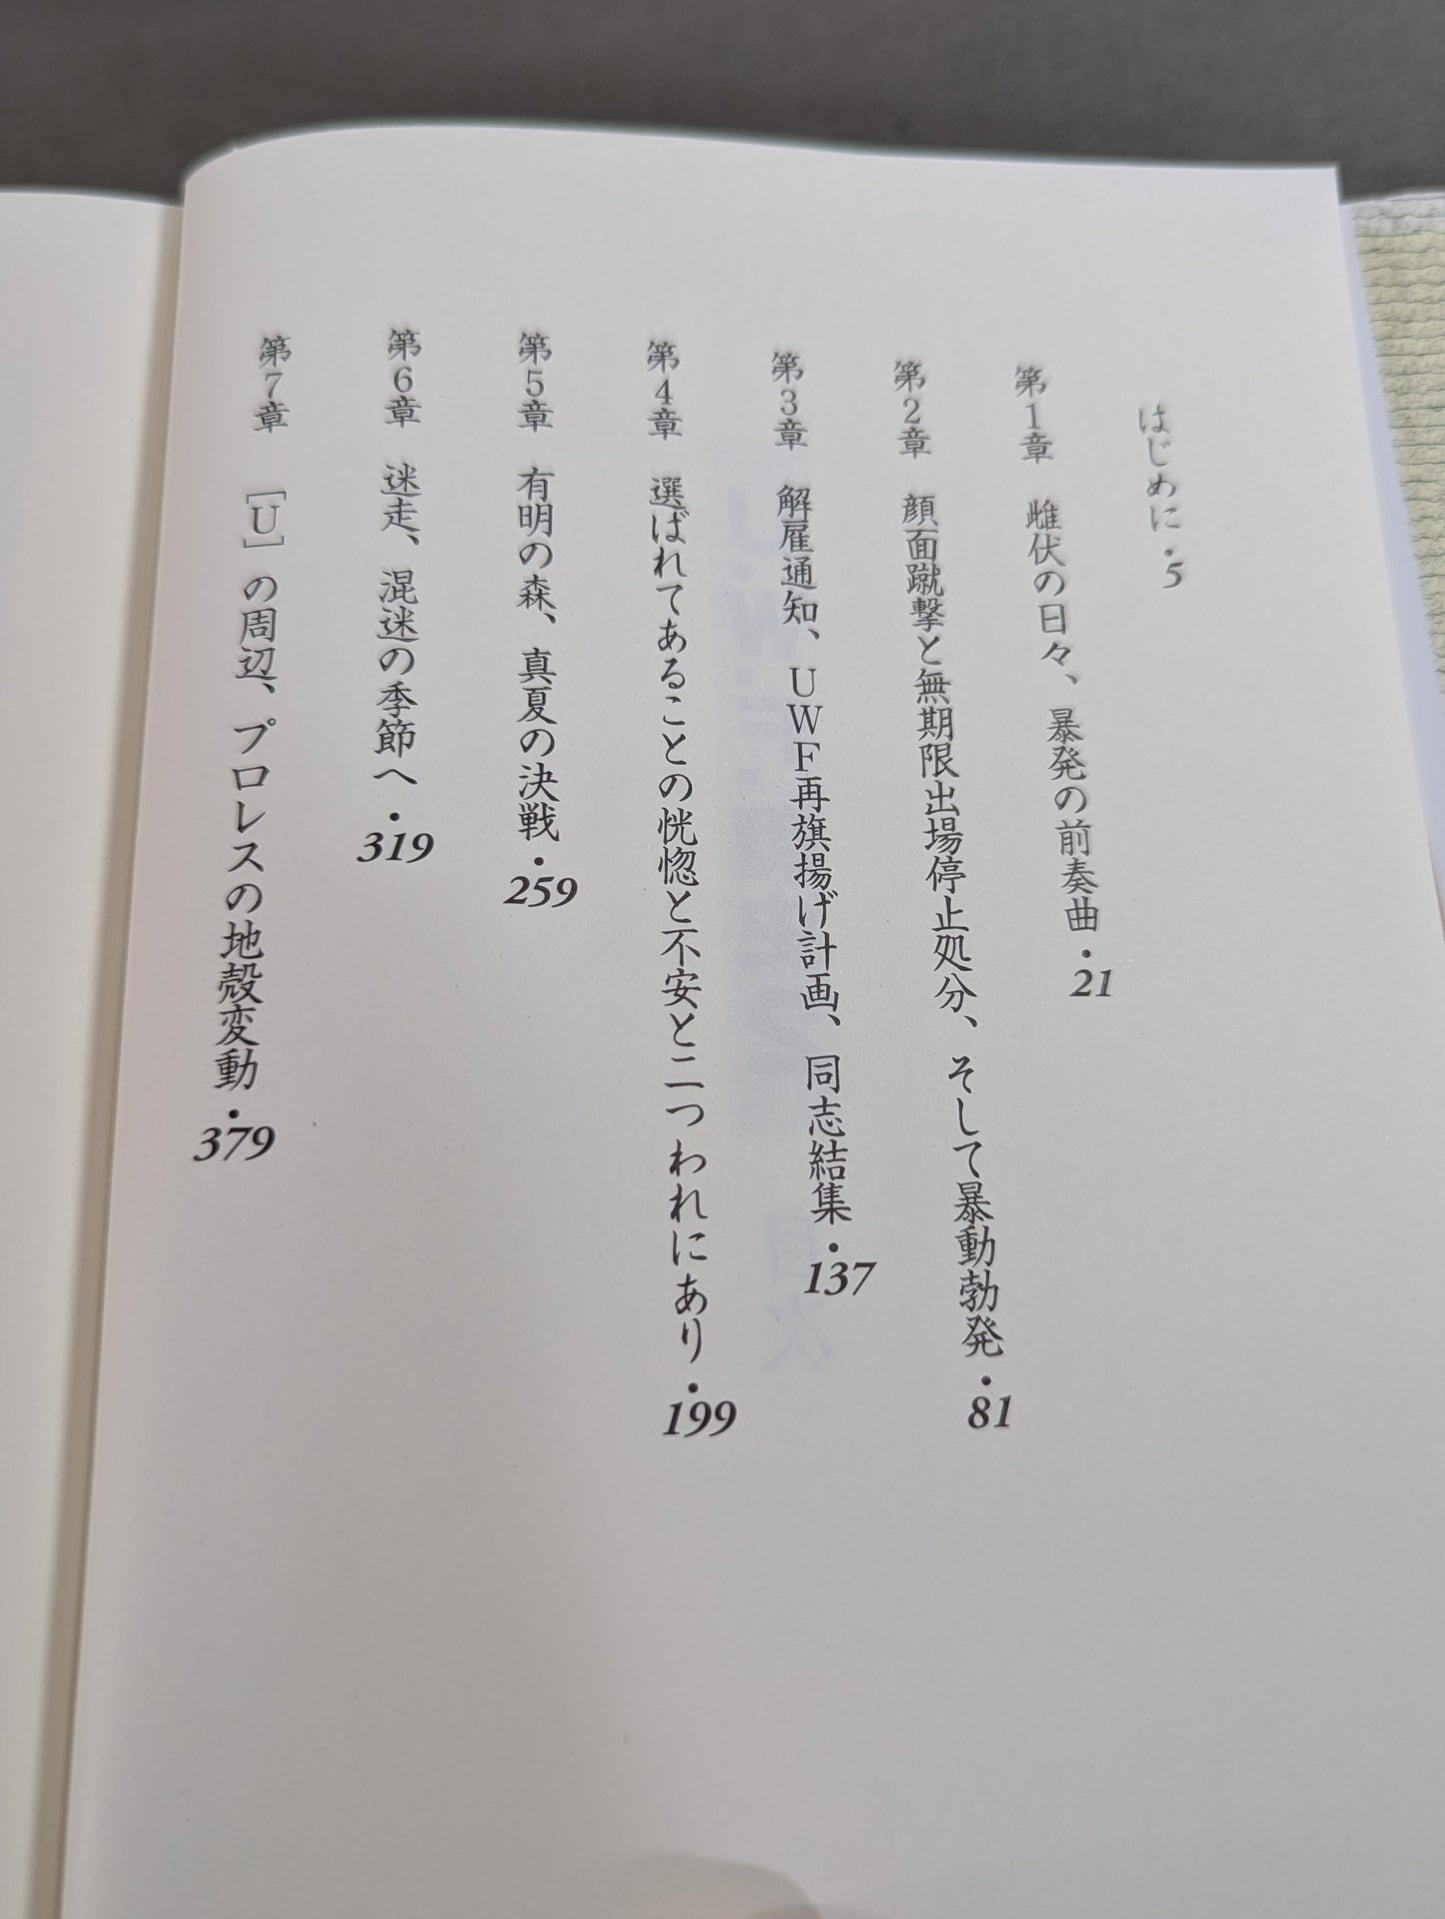 はじめに・5
第1章　雌伏の日々、暴発の前奏曲・21
第2章　顔面蹴撃と無期限出場停止処分、そして暴動勃発・81
第3章　解雇通知、UWF再旗揚げ計画、同志結集・137
第4章　選ばれてあることの恍惚と不安と二つわれにあり・199
第5章　有明の森、真夏の決戦・259
第6章　迷走、混迷の季節へ・319
第7章　［U］の周辺、プロレスの地殻変動・379